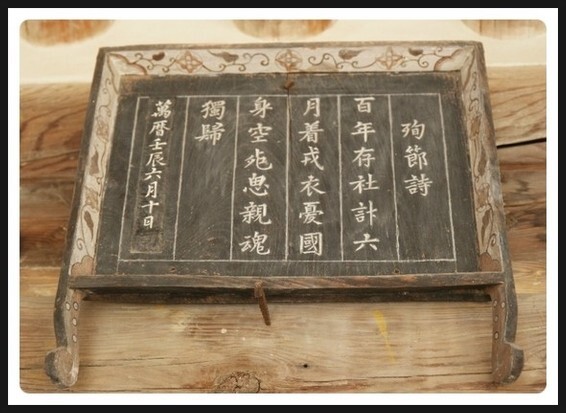 殉節詩
百年存社計六
月着戎衣憂國
身空死思親魂
獨歸
萬曆壬辰六月十日